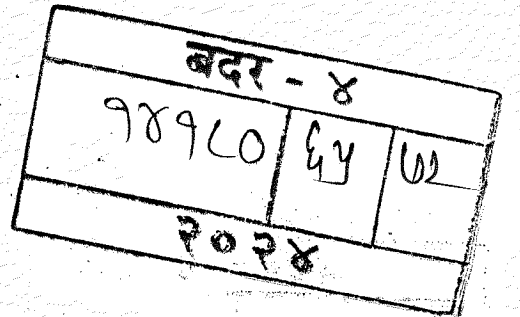 बदर - ४
१४१८० ६५ ७२
२०२४